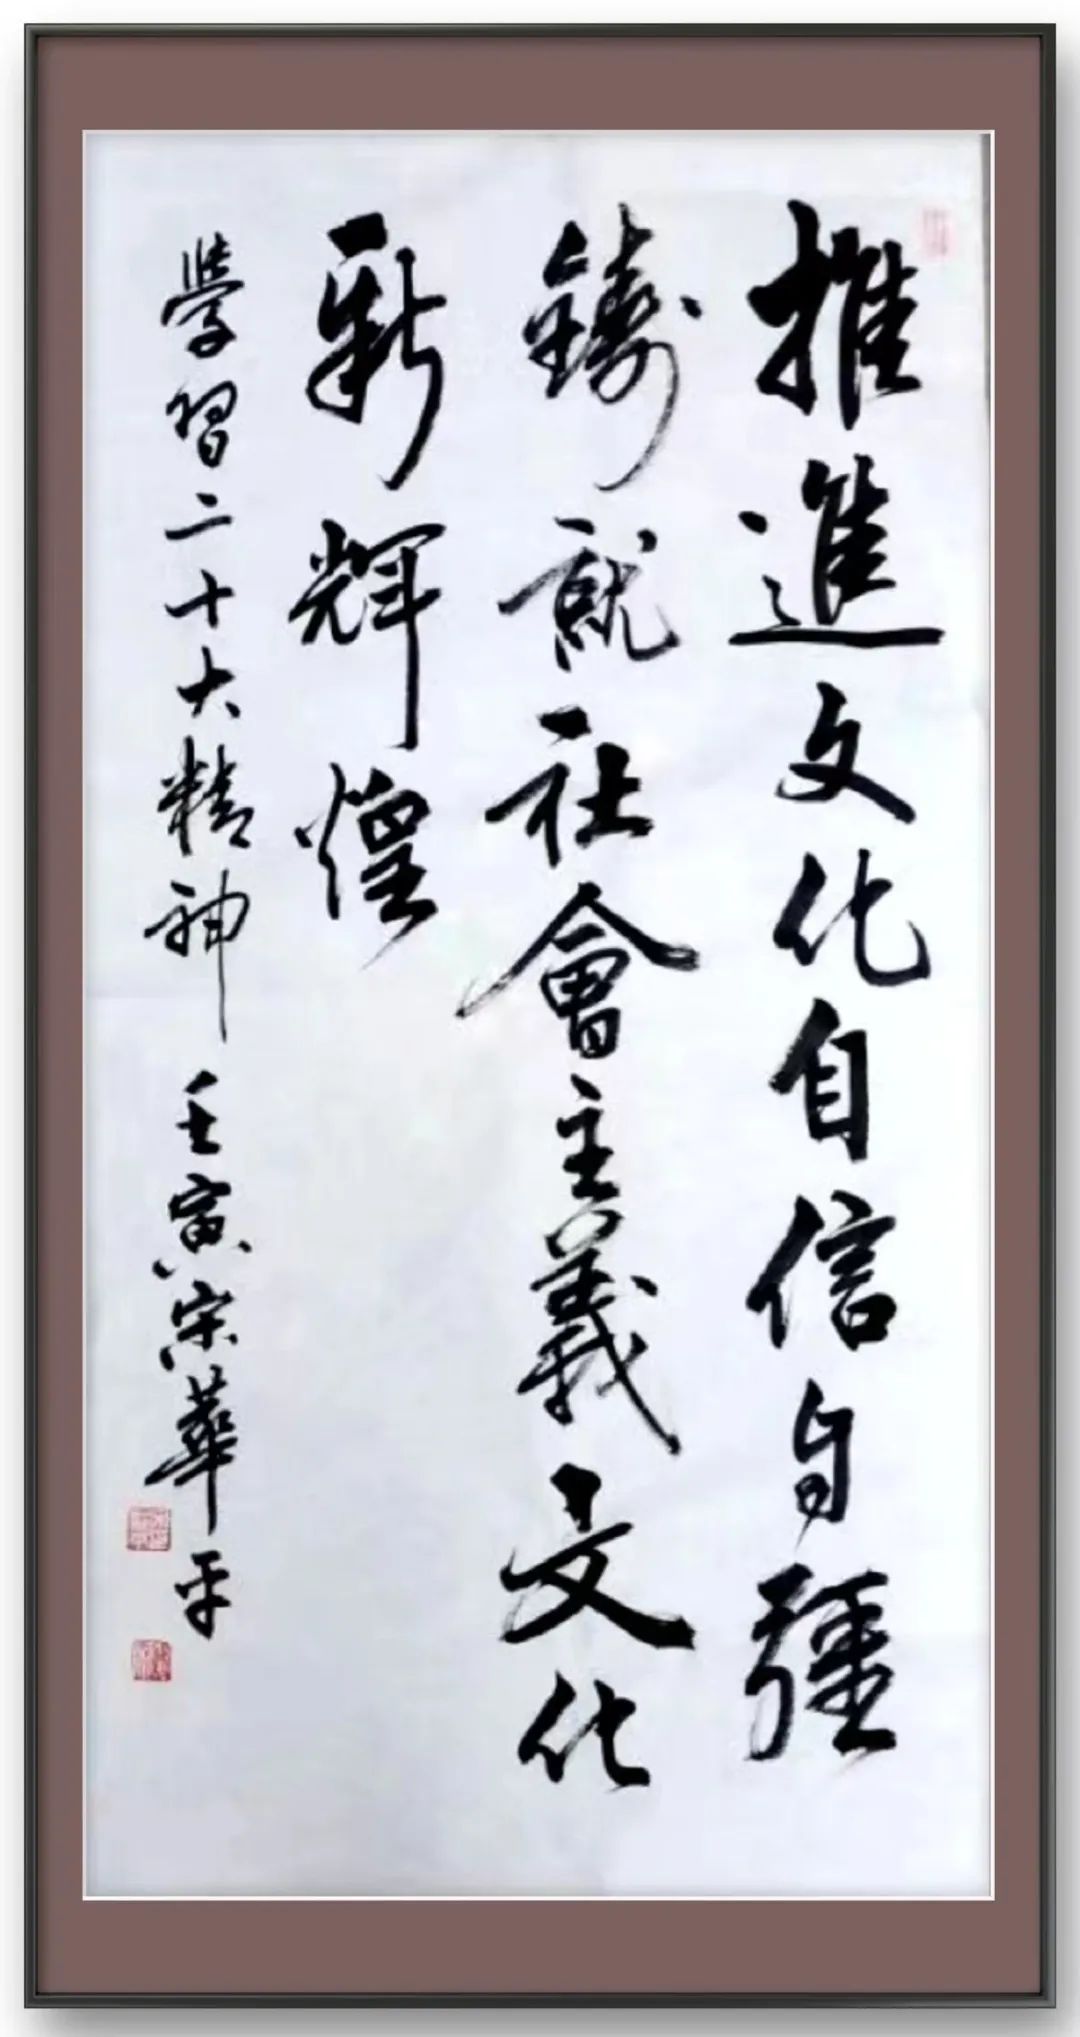 推進文化自信自強
鑄就社會主義文化
新輝煌
學習二十大精神 壬寅宋華平